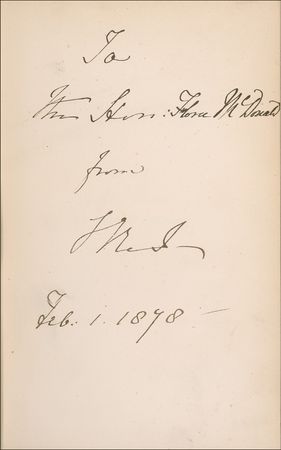 To
The Hon: Flora McDonald
from
Feb. 1. 1878